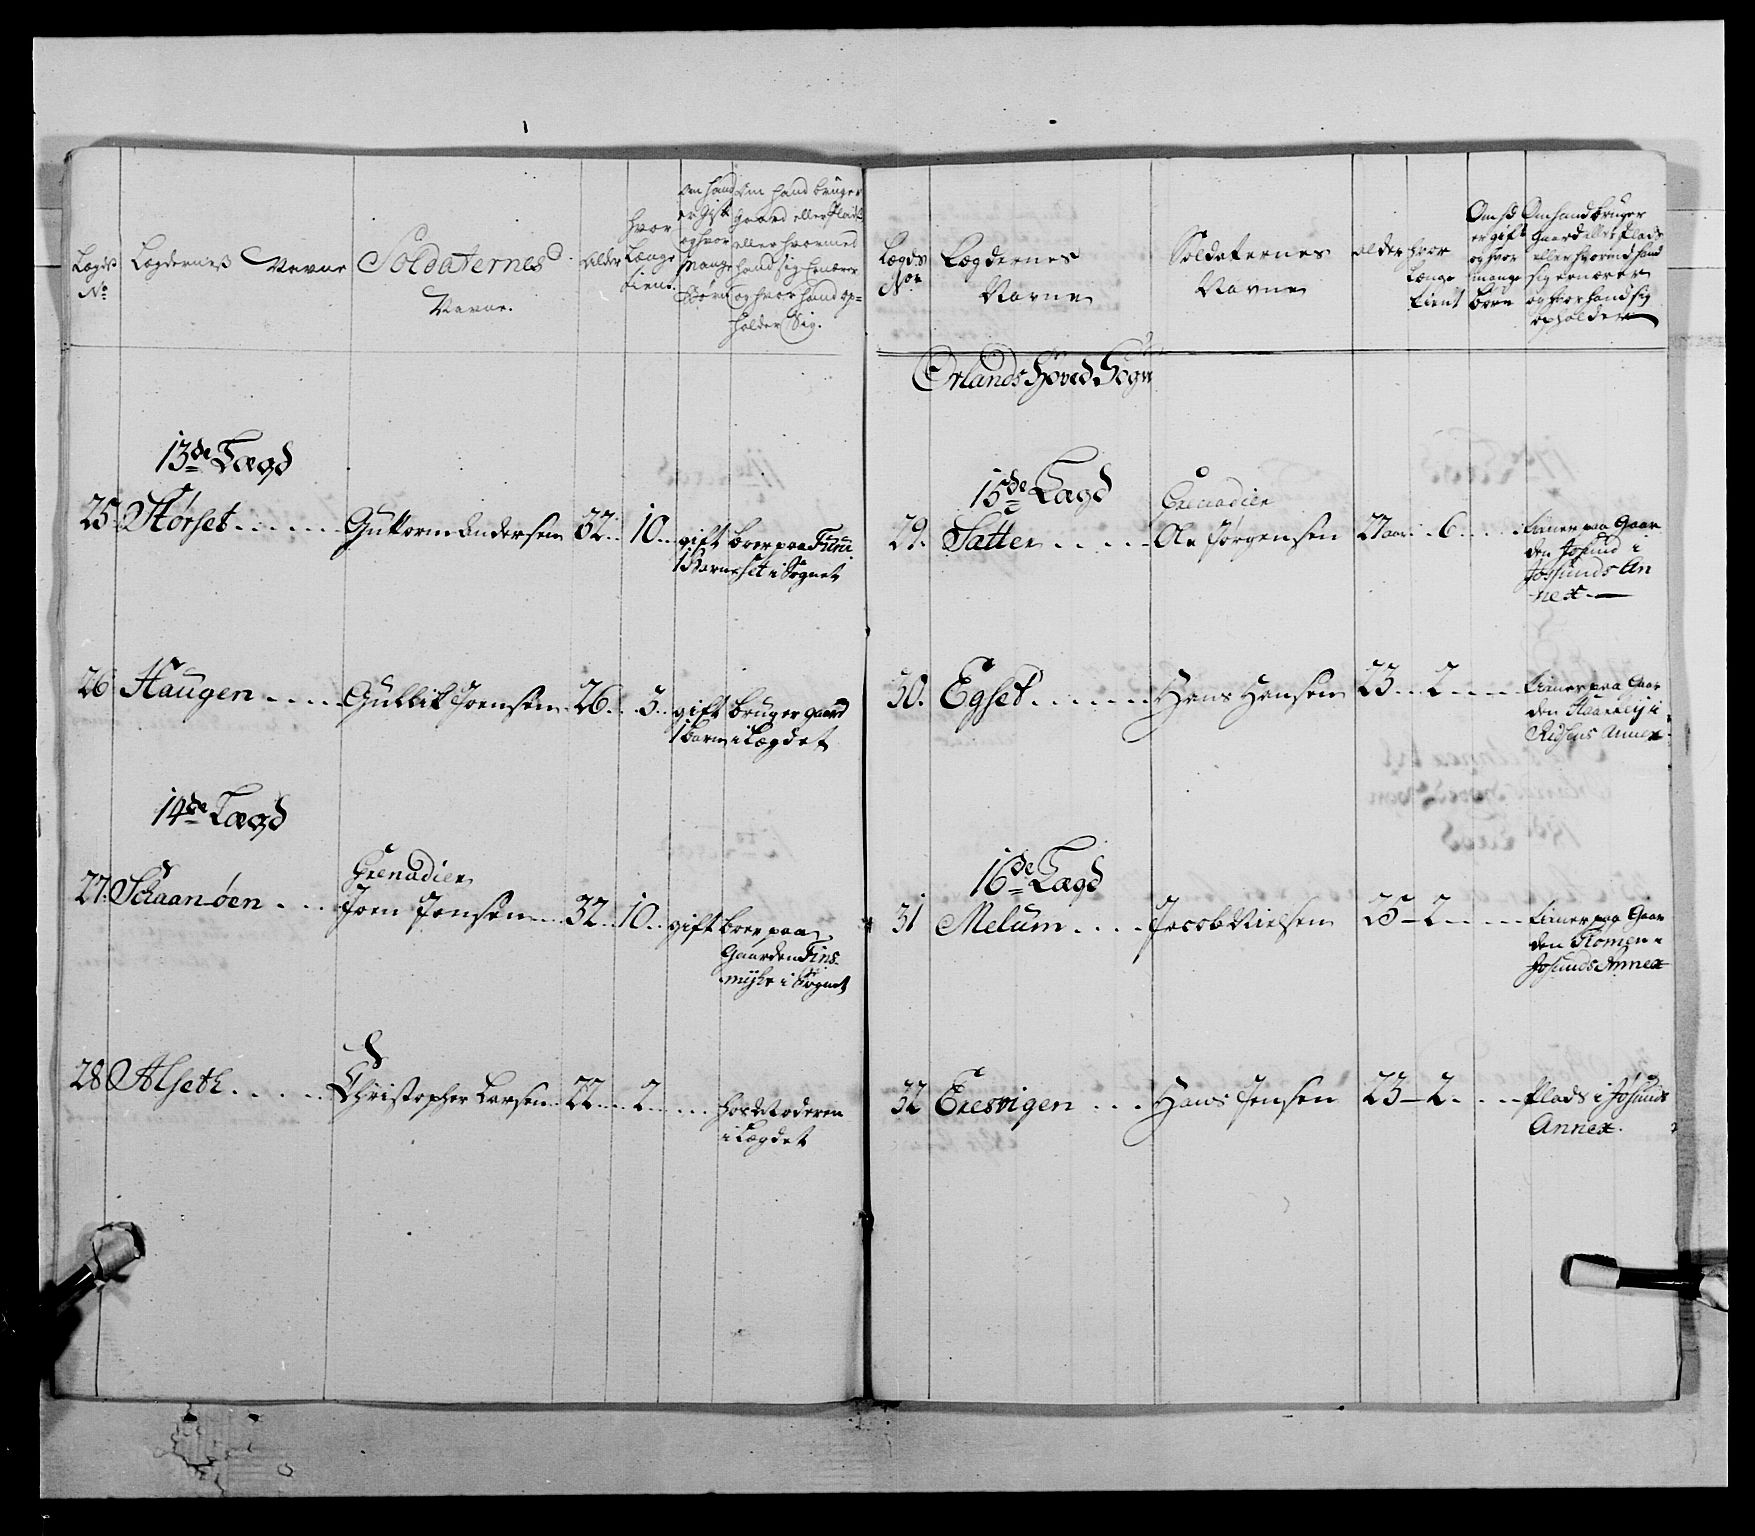 Lægds
No
Lægdernes Navne
Soldaternes
Navne.
Alder
hvor
Længe
tient.
om hand
er gift
og hvor
mange
Børn
Om hand bruger
Gaard eller Plads
eller hvormed
hand sig ernærer
og hvor hand op=
holder Sig.
13de Lægd
25. Størset ...... Guttorm Andersen 32.. 10.. gift boer paa Furu
1 Barn set i Sognet
26 Haugen .... Gullik Joensen 26.. 3.. gift bruger gaard
1 barn i Lægdet
14de Lægd
Grenadier
27. Schaanøen ... Joen Jonsen ... 32.. 10.. gift boer paa
Gaarden Fins
myhr i Sognet
28 Alseth ..... Christopher Larsen .. 22... 2.... hos
i Lægdet
Lægds
Nor
Lægdernes
Navne
Soldaternes
Navne
alder
hvor
Længe
tient
Om hd
er gift
og hvor
mange
børn
Om hand bruger
Gaard eller Plads
eller hvormed hand
sig ernærer
og hvor hand sig
opholder
Ørlands Hoved Sogn
15de Lægd
Grenadier
29. Satter ..... Ole Jørgensen 27 aar .. 6.... tiener paa Gaar
den Josund i
Jossunds An
nex.
30. Egset ....... Hans Hansen 23... 2..... tiener paa Gaar
den i
Annex
16de Lægd
31 Melum .... Jacob Nielsen 25 - 2.... tiener paa Gaar
den i
Josunds Annex
32 Exesvigen ... Hans Jensen 23 - 2... Plads i Jøsunds
Annex.